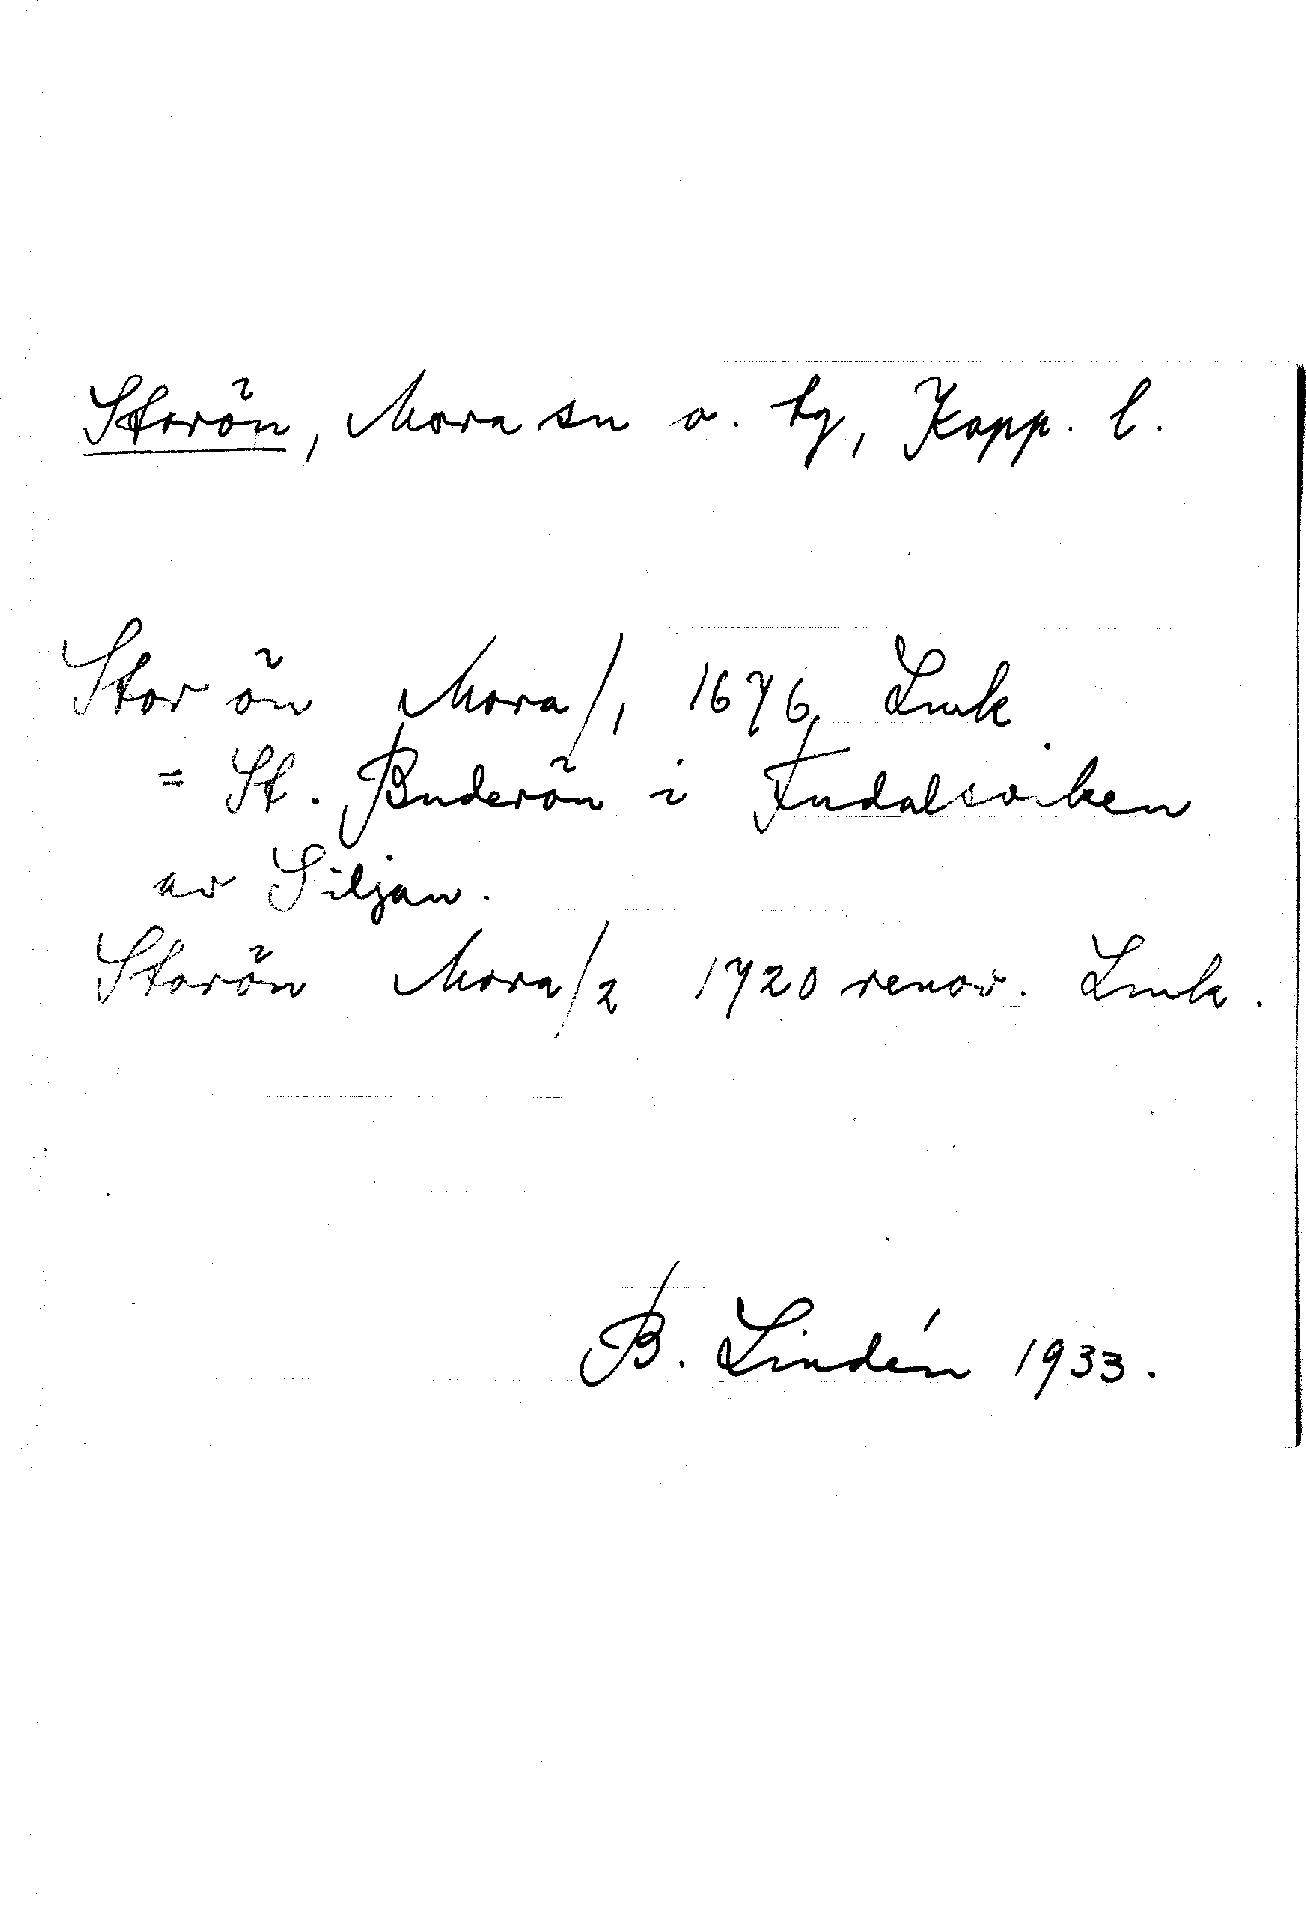 Storön, Mora sn o. tg, Kopp. l.
Stor ön Mora/1 1676 Lmk.
= St. Buderön i Fudalsviken
av Siljan.
Storön Mora/2 1720 renov. Lmk.
B. Lindén 1933.